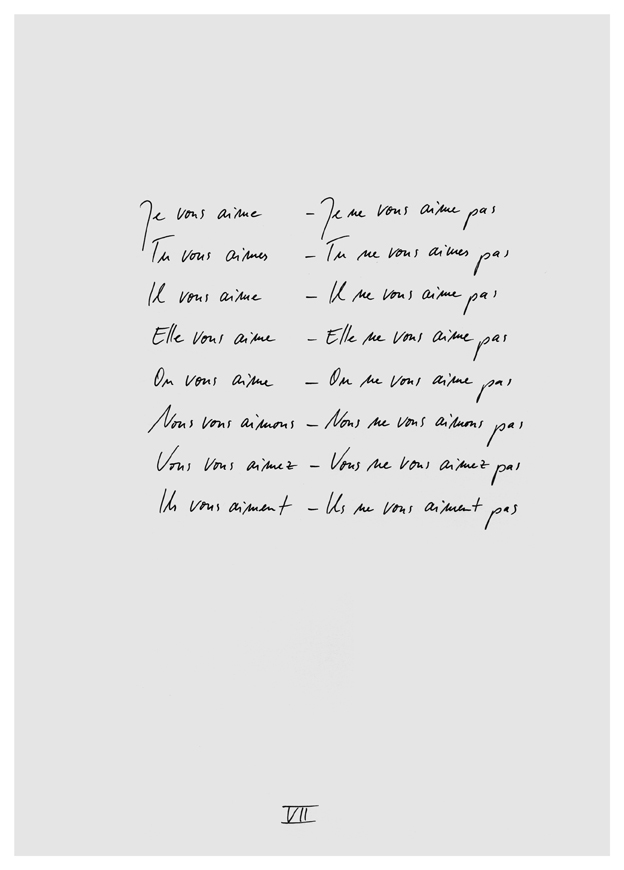 Je vous aime – Je ne vous aime pas
Tu vous aimes – Tu ne vous aimes pas
Il vous aime – Il ne vous aime pas
Elle vous aime – Elle ne vous aime pas
On vous aime – On ne vous aime pas
Nous vous aimons – Nous ne vous aimons pas
Vous vous aimez – Vous ne vous aimez pas
Ils vous aiment – Ils ne vous aiment pas
VII